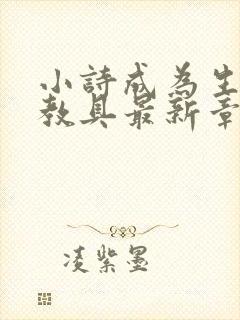 小詩成為生
教具最新章
凌紫墨